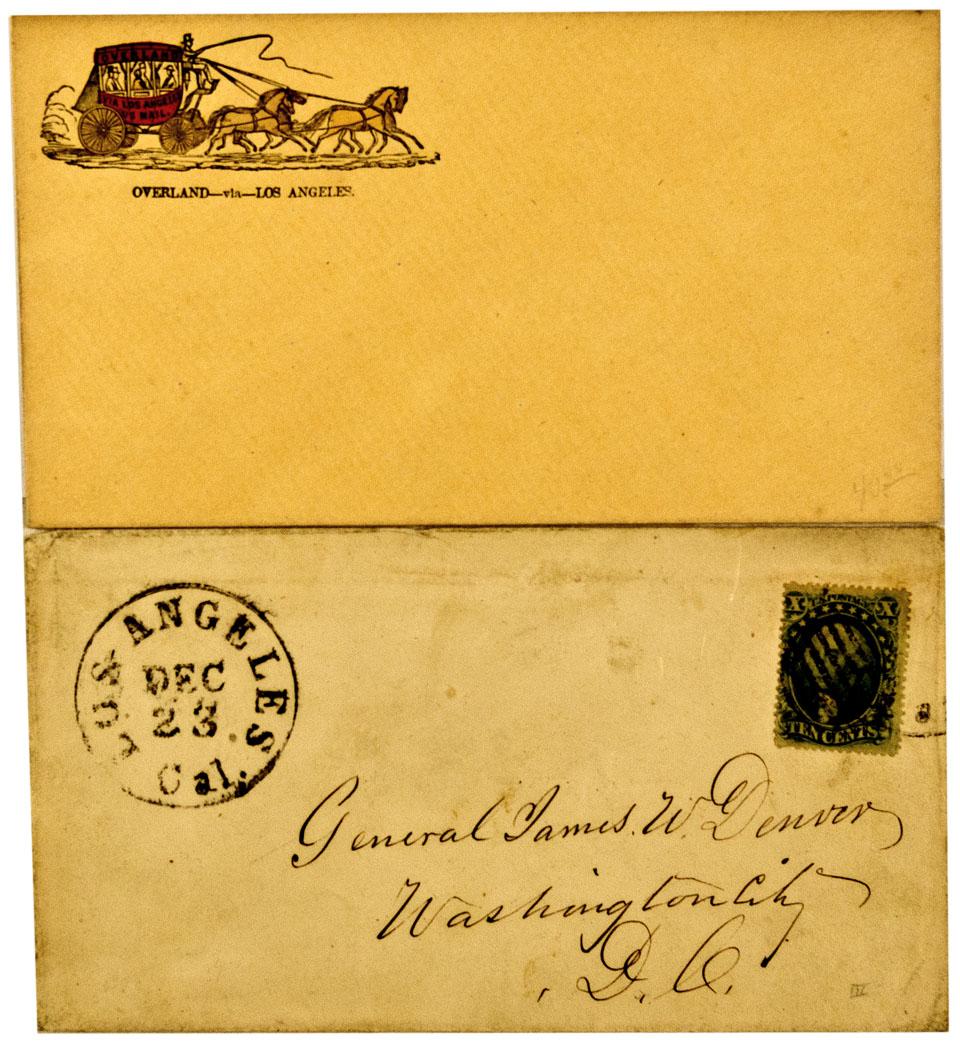 OVERLAND
VIA LOS ANGELES
US MAIL.
OVERLAND—via—LOS ANGELES.
LOS ANGELES
DEC
23.
Cal.
X U.S. POSTAGE X
TEN CENTS.
General James. W. Denver
Washington City
D. C.